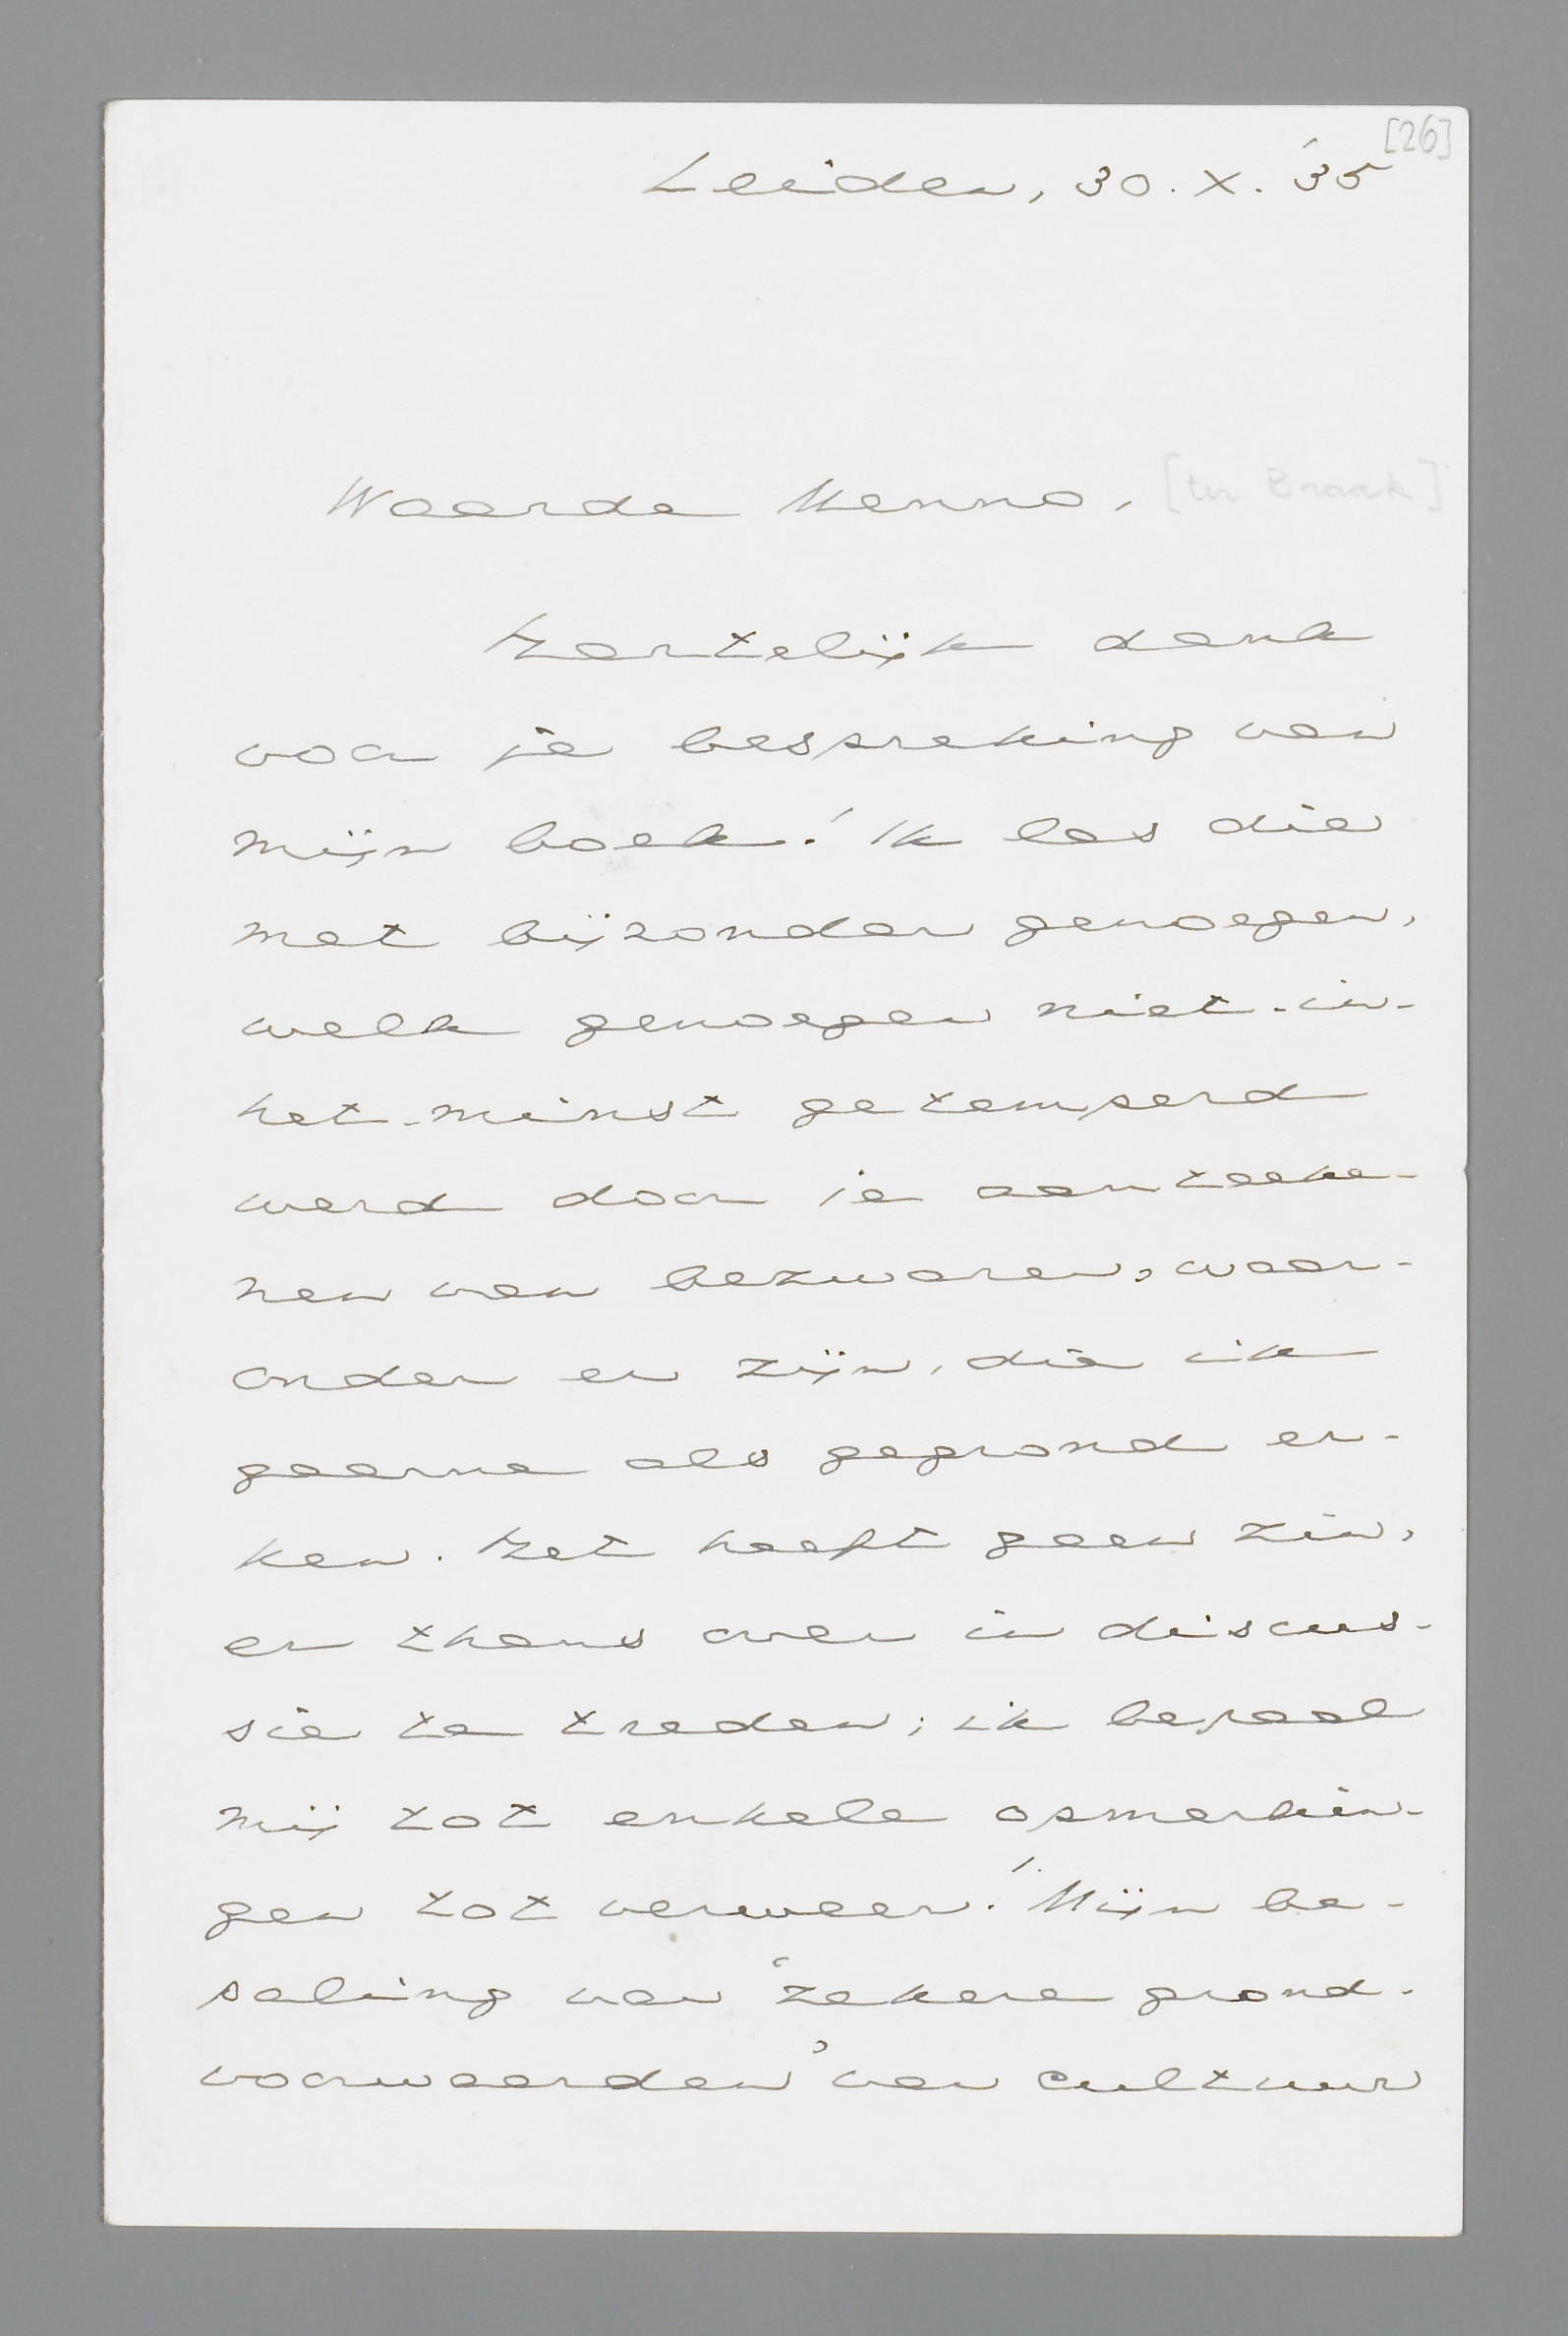 [26]
Leiden, 30.X.'35
Waarde Menno, [ter Braak]
Hartelijk dank
voor je bespreking van
mijn boek! Ik las die
met bijzonder genoegen,
welk genoegen niet-in-
het-minst getemperd
werd door je aanteeke-
nen van bezwaren, waar-
onder er zijn, die ik
gaarne als gegrond er-
ken. Het heeft geen zin,
er thans over in discus-
sie te treden; ik bepaal
mij tot enkele opmerkin-
gen tot verweer! Mijn be-
paling van 'zekere grond-
voorwaarden' van cultuur